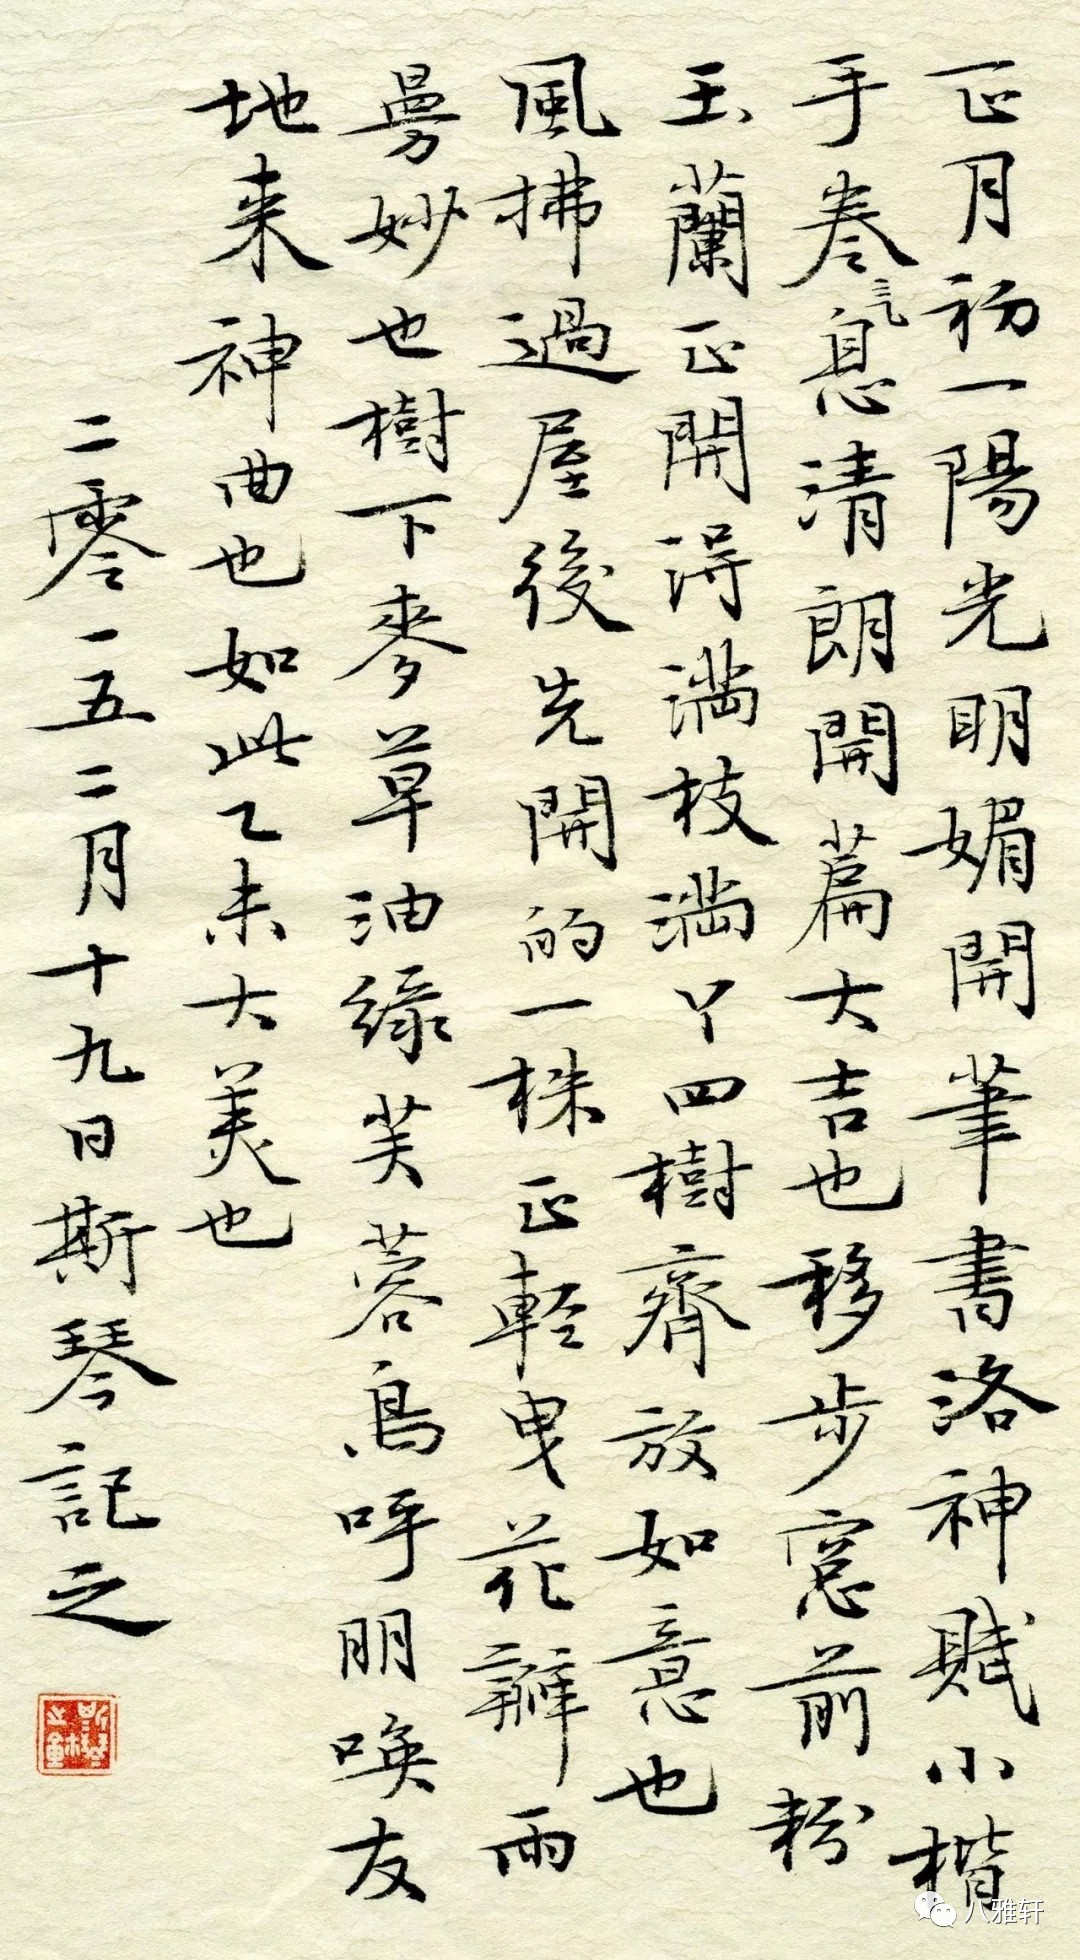 正月初一陽光明媚開筆書洛神賦小楷
手卷氣息清朗開篇大吉也移步窓前粉
玉蘭正開得满枝满丫四樹齊放如意也
風拂過屋後先開的一株正輕曳花瓣雨
曼妙也樹下麥草油緑芙蓉鳥呼朋唤友
地来神曲也如此乙未大美也
二零一五二月十九日斯琴記之
八雅轩